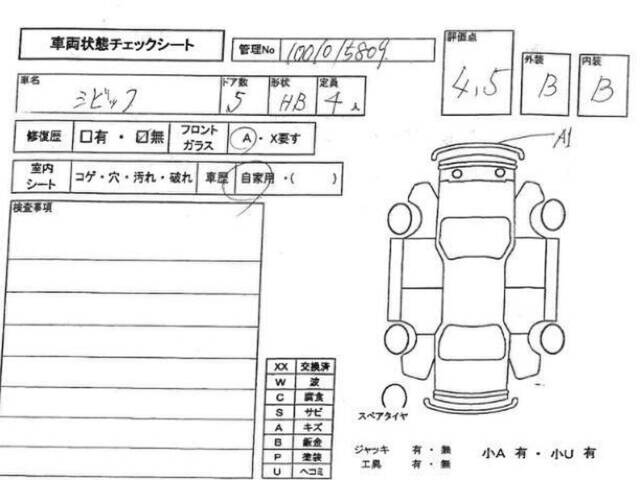 車両状態チェックシート
管理No 1001015809
評価点 4,5
外装 B
内装 B
車名 シビック
ドア数 5
形状 HB
定員 4人
修復歴 □有・☑無
フロントガラス A・X要す
室内シート コゲ・穴・汚れ・破れ
車歴 自家用・( )
検査事項
A1
XX 交換済
W 波
C 腐食
S サビ
A キズ
B 鈑金
P 塗装
U ヘコミ
スペアタイヤ
ジャッキ 有・無
工具 有・無
小A 有・小U 有